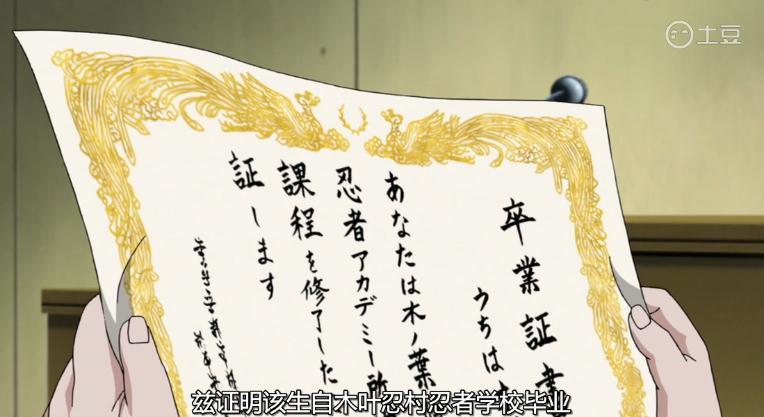 土豆
卒業証書
うちは
あなたは木ノ葉
忍者アカデミー所
課程を修了した
証します
兹证明该生自木叶忍村忍者学校毕业